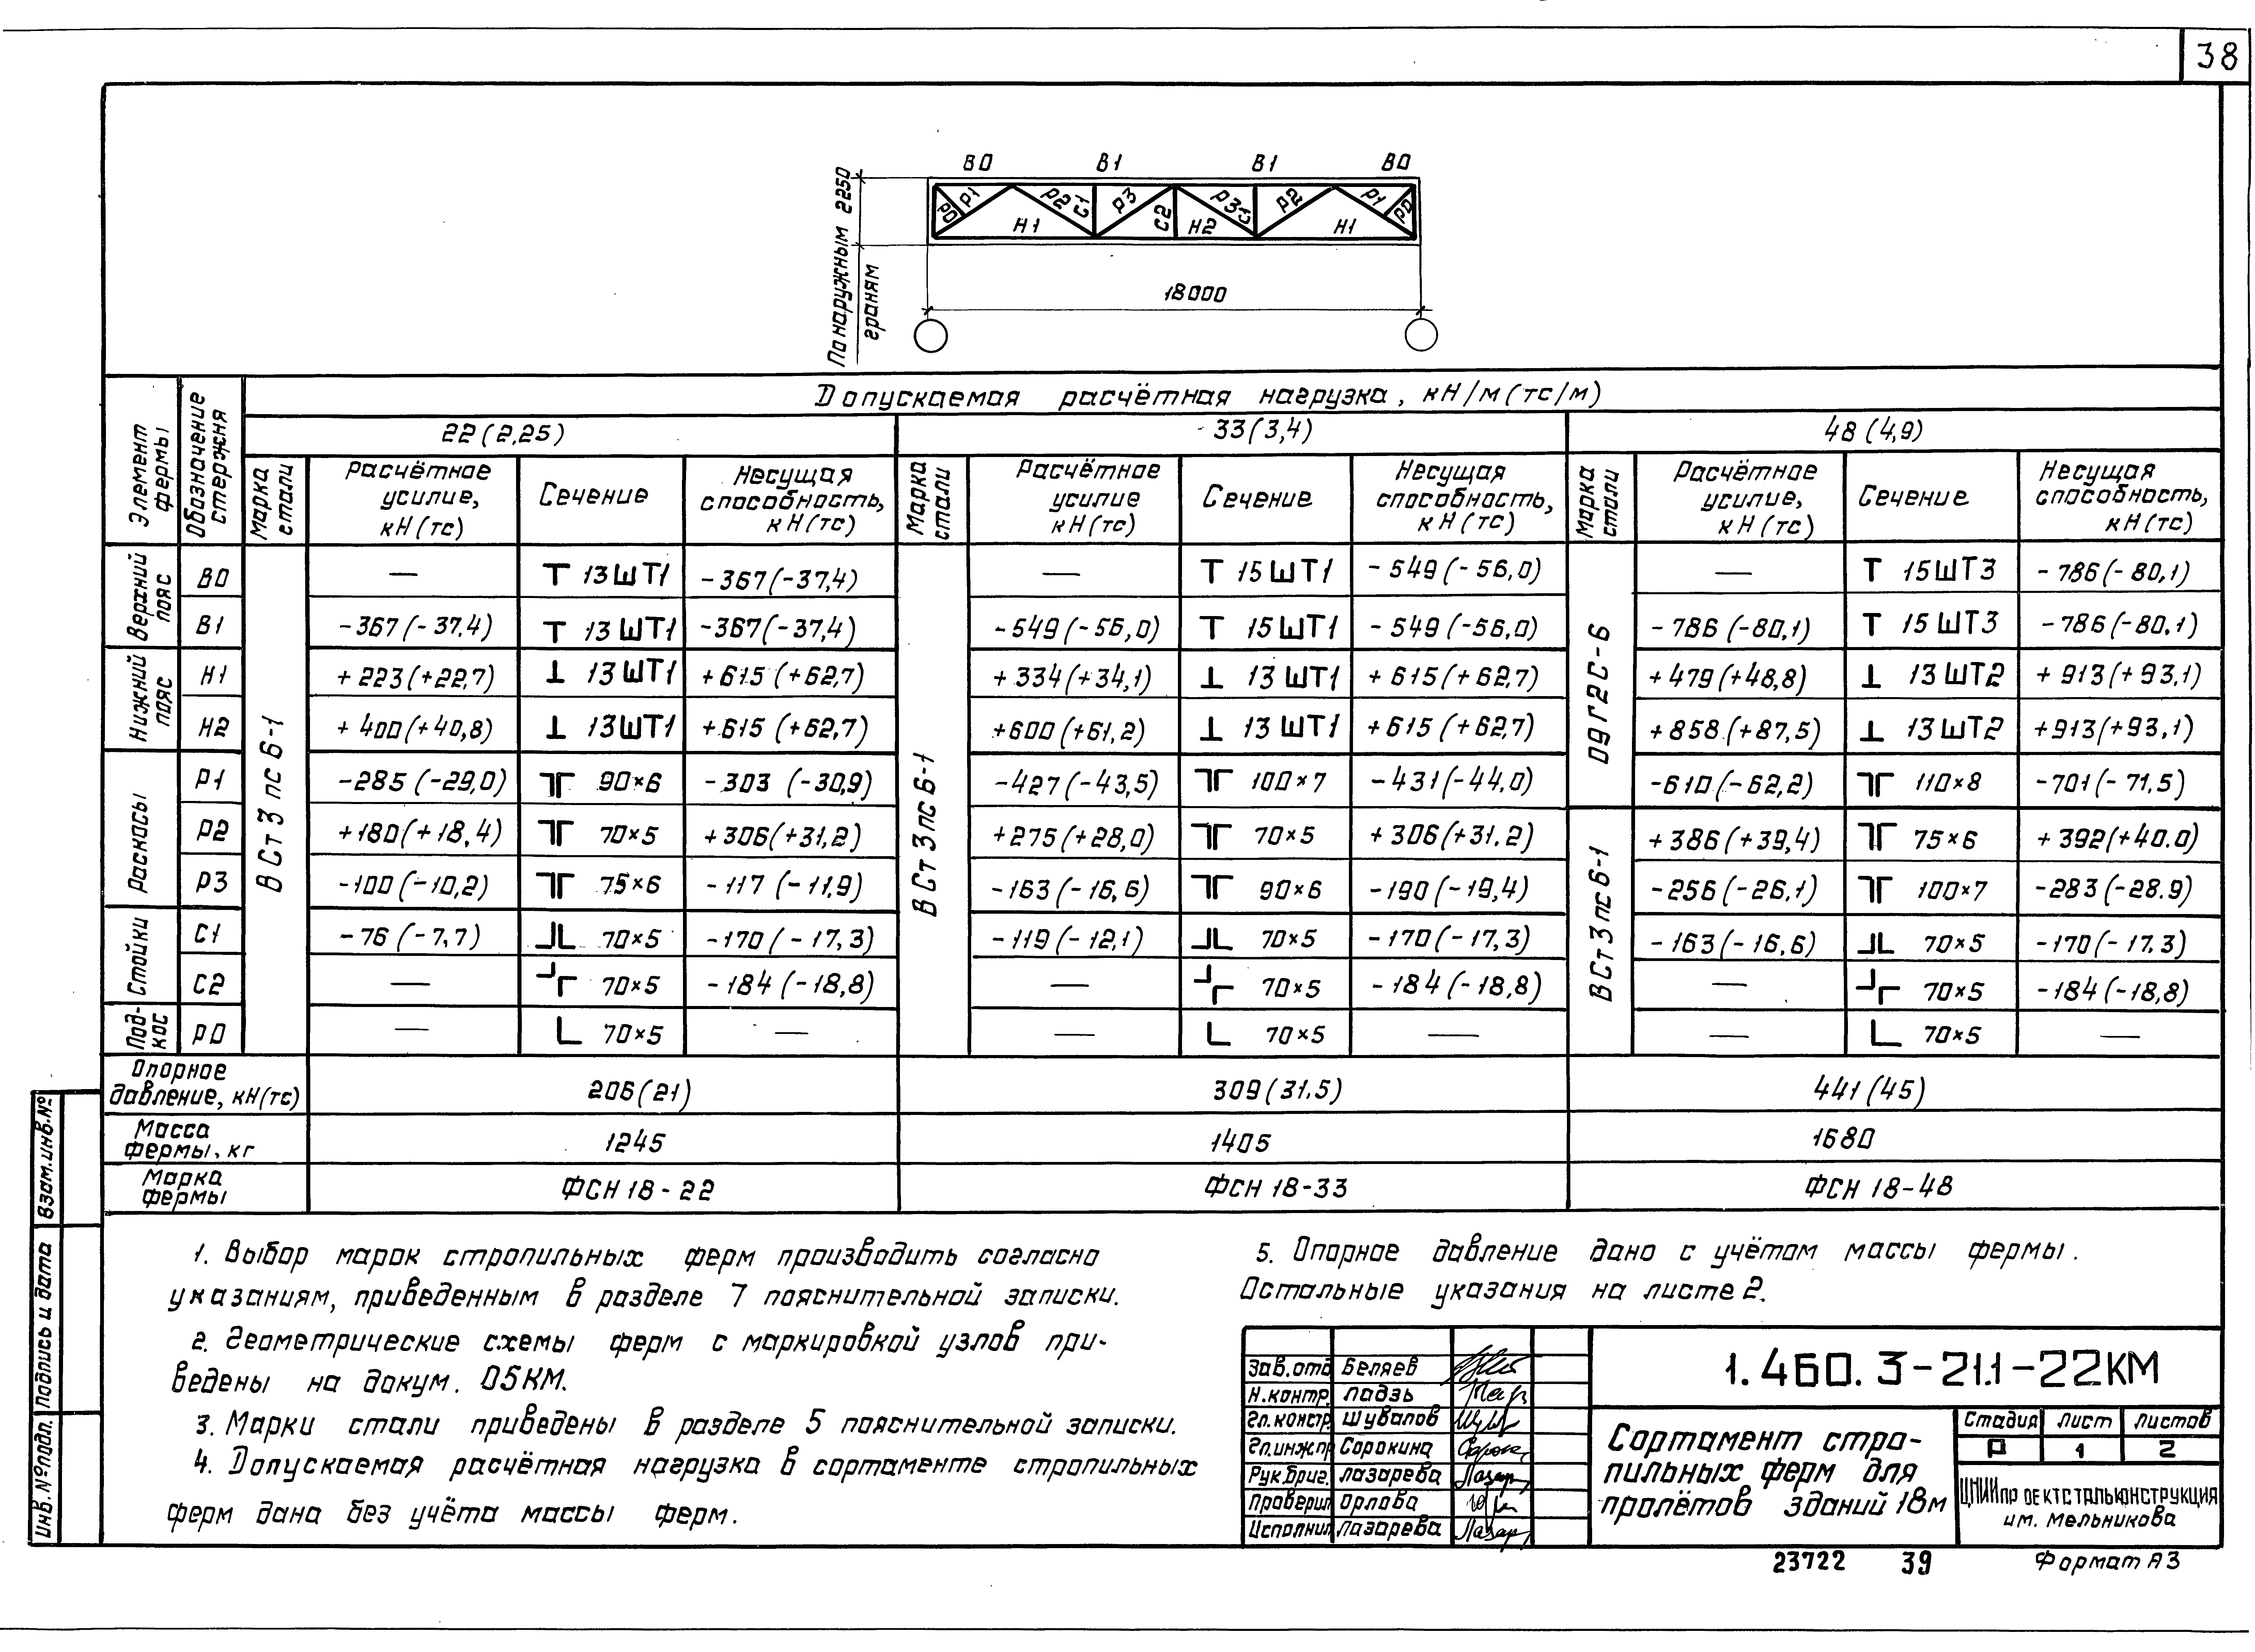 38
В0 В1 В1 В0
Р0 Р1 Р2 С1 Р3 С2 Р3 С1 Р2 Р1 Р0
Н1 Н2 Н1
По наружным 2250
граням
18000
Допускаемая расчётная нагрузка, кН/м (тс/м)
Элемент фермы
Обозначение стержня
22 (2,25) 33 (3,4) 48 (4,9)
Марка стали | Расчётное усилие, кН (тс) | Сечение | Несущая способность, кН (тс) | Марка стали | Расчётное усилие кН (тс) | Сечение | Несущая способность, кН (тс) | Марка стали | Расчётное усилие, кН (тс) | Сечение | Несущая способность, кН (тс)
Верхний пояс
Нижний пояс
Раскосы
Стойки
Подкос
ВСт3пс6-1 ВСт3пс6-1 09Г2С-6 ВСт3пс6-1
В0 — 13ШТ1 -367 (-37,4) — 15ШТ1 -549 (-56,0) — 15ШТ3 -786 (-80,1)
В1 -367 (-37,4) 13ШТ1 -367 (-37,4) -549 (-56,0) 15ШТ1 -549 (-56,0) -786 (-80,1) 15ШТ3 -786 (-80,1)
Н1 +223 (+22,7) 13ШТ1 +615 (+62,7) +334 (+34,1) 13ШТ1 +615 (+62,7) +479 (+48,8) 13ШТ2 +913 (+93,1)
Н2 +400 (+40,8) 13ШТ1 +615 (+62,7) +600 (+61,2) 13ШТ1 +615 (+62,7) +858 (+87,5) 13ШТ2 +913 (+93,1)
Р1 -285 (-29,0) 90×6 -303 (-30,9) -427 (-43,5) 100×7 -431 (-44,0) -610 (-62,2) 110×8 -701 (-71,5)
Р2 +180 (+18,4) 70×5 +306 (+31,2) +275 (+28,0) 70×5 +306 (+31,2) +386 (+39,4) 75×6 +392 (+40.0)
Р3 -100 (-10,2) 75×6 -117 (-11,9) -163 (-16,6) 90×6 -190 (-19,4) -256 (-26,1) 100×7 -283 (-28.9)
С1 -76 (-7,7) 70×5 -170 (-17,3) -119 (-12,1) 70×5 -170 (-17,3) -163 (-16,6) 70×5 -170 (-17,3)
С2 — 70×5 -184 (-18,8) — 70×5 -184 (-18,8) — 70×5 -184 (-18,8)
Р0 — 70×5 — — 70×5 — — 70×5 —
Опорное давление, кН (тс) 206 (21) 309 (31,5) 441 (45)
Масса фермы, кг 1245 1405 1680
Марка фермы ФСН 18-22 ФСН 18-33 ФСН 18-48
1. Выбор марок стропильных ферм производить согласно
указаниям, приведенным в разделе 7 пояснительной записки.
2. Геометрические схемы ферм с маркировкой узлов при-
ведены на докум. 05КМ.
3. Марки стали приведены в разделе 5 пояснительной записки.
4. Допускаемая расчётная нагрузка в сортаменте стропильных
ферм дана без учёта массы ферм.
5. Опорное давление дано с учётом массы фермы.
Остальные указания на листе 2.
Зав.отд Беляев
Н.контр. Ладзь
Гл.констр. Шувалов
Гл.инж.пр Сорокина
Рук.бриг. Лазарева
Проверил Орлова
Исполнил Лазарева
1.460.3-21.1-22КМ
Сортамент стро-
пильных ферм для
пролётов зданий 18м
Стадия Лист Листов
Р 1 2
ЦНИИпроектстальконструкция
им. Мельникова
23722 39 Формат А3
Взам.инв.№
Подпись и дата
Инв.№подл.